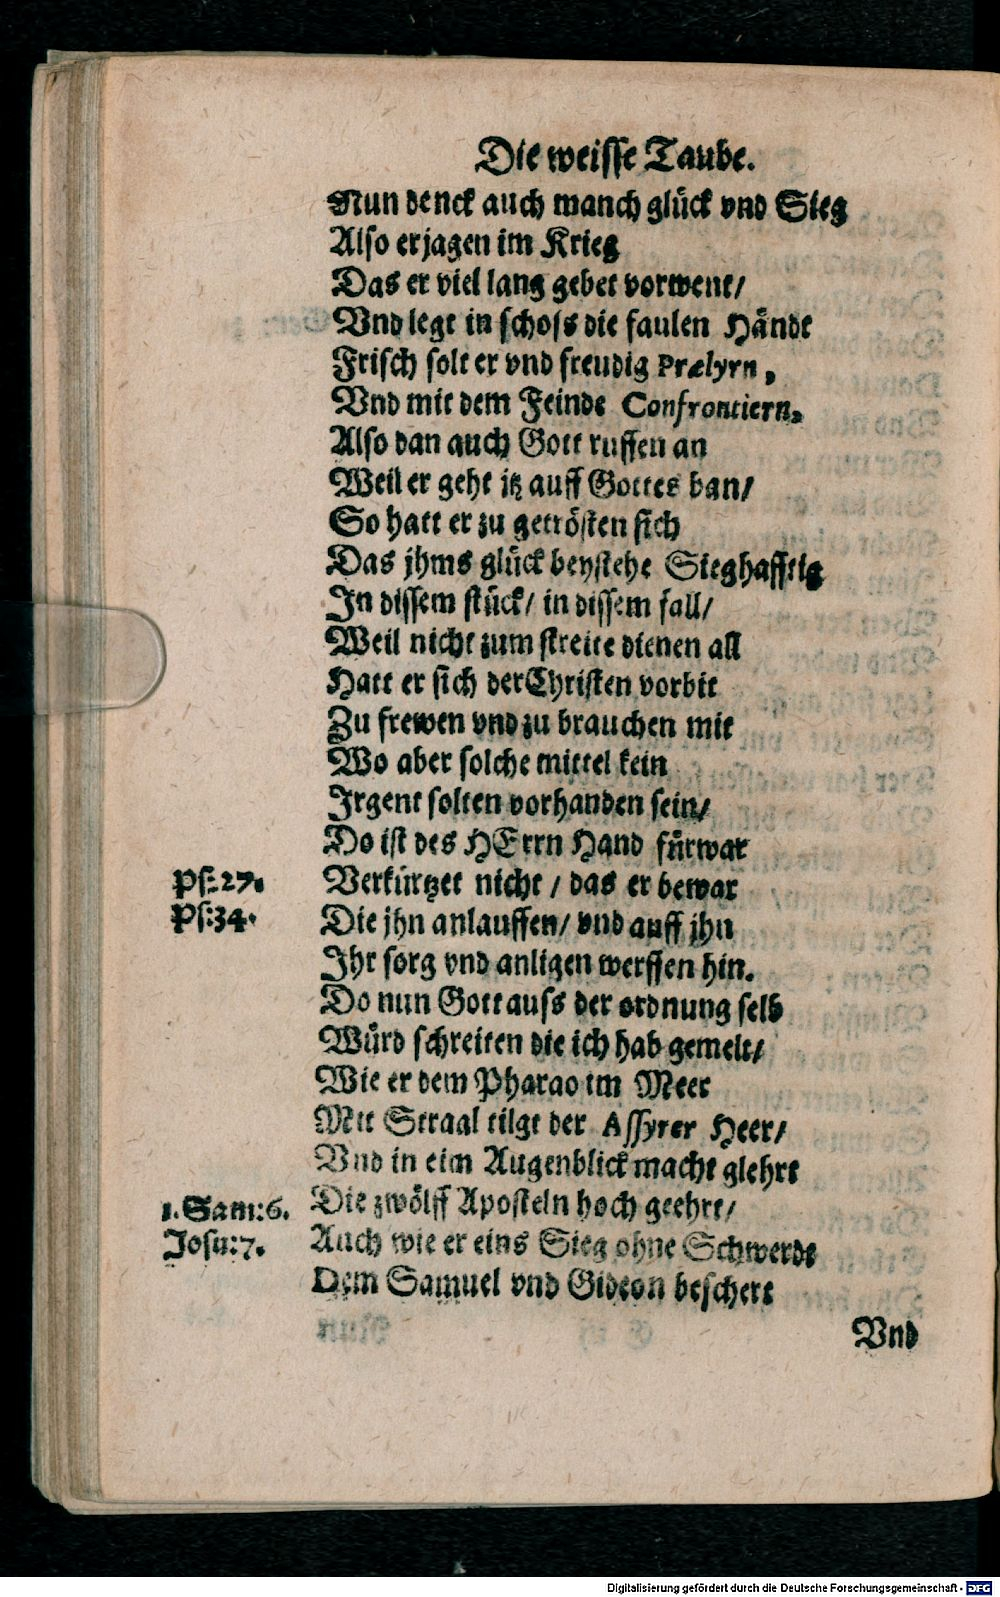 Die weisse Taube.
Nun denck auch manch glück vnd Sieg
Also erjagen im Krieg
Das er viel lang gebet vorwent/
Vnd legt in schoss die faulen Hände
Frisch solt er vnd freudig Prælyrn,
Vnd mit dem Feinde Confrontiern,
Also dan auch Gott ruffen an
Weil er geht itz auff Gottes ban/
So hatt er zu getrösten sich
Das jhms glück beystehe Sieghafftig
In dissem stück/ in dissem fall/
Weil nicht zum streite dienen all
Hatt er sich der Christen vorbit
Zu frewen vnd zu brauchen mit
Wo aber solche mittel kein
Irgent solten vorhanden sein/
Do ist des HErrn Hand fürwar
Ps:27. Verkürtzet nicht / das er bewar
Ps:34. Die jhn anlauffen/ vnd auff jhn
Ihr sorg vnd anligen werffen hin.
Do nun Gott auss der ordnung selb
Würd schreiten die ich hab gemelt/
Wie er dem Pharao im Meer
Mit Straal tilgt der Assyrer Heer/
Vnd in eim Augenblick macht glehrt
1. Sam:6. Die zwölff Aposteln hoch geehrt/
Josu:7. Auch wie er eins Sieg ohne Schwerdt
Dem Samuel vnd Gideon beschert
Vnd
Digitalisierung gefördert durch die Deutsche Forschungsgemeinschaft - DFG